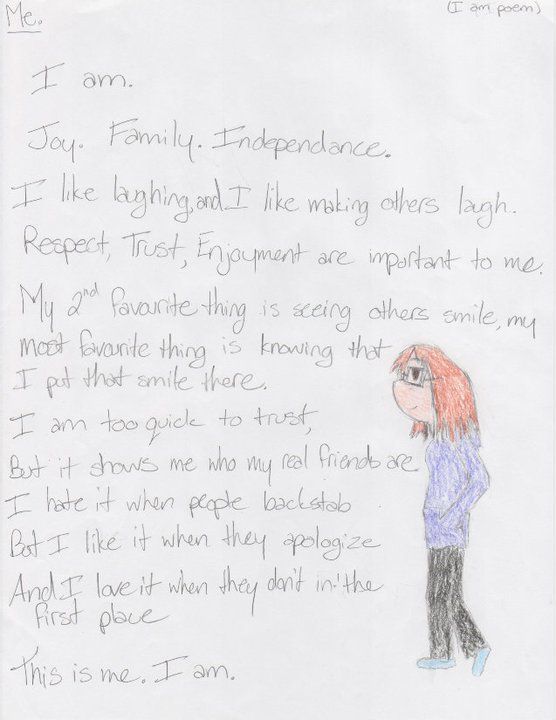 Me.
(I am poem)
I am.
Joy. Family. Independance.
I like laughing, and I like making others laugh.
Respect, Trust, Enjoyment are important to me.
My 2nd favourite thing is seeing others smile, my
most favourite thing is knowing that
I put that smile there.
I am too quick to trust,
But it shows me who my real friends are
I hate it when people backstab
But I like it when they apologize
And I love it when they don't in the
first place
This is me. I am.